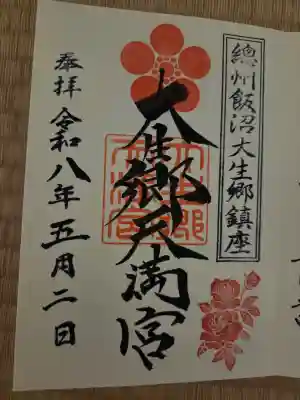 總州飯沼大生郷鎮座
大生郷天満宮
奉拝 令和八年五月二日